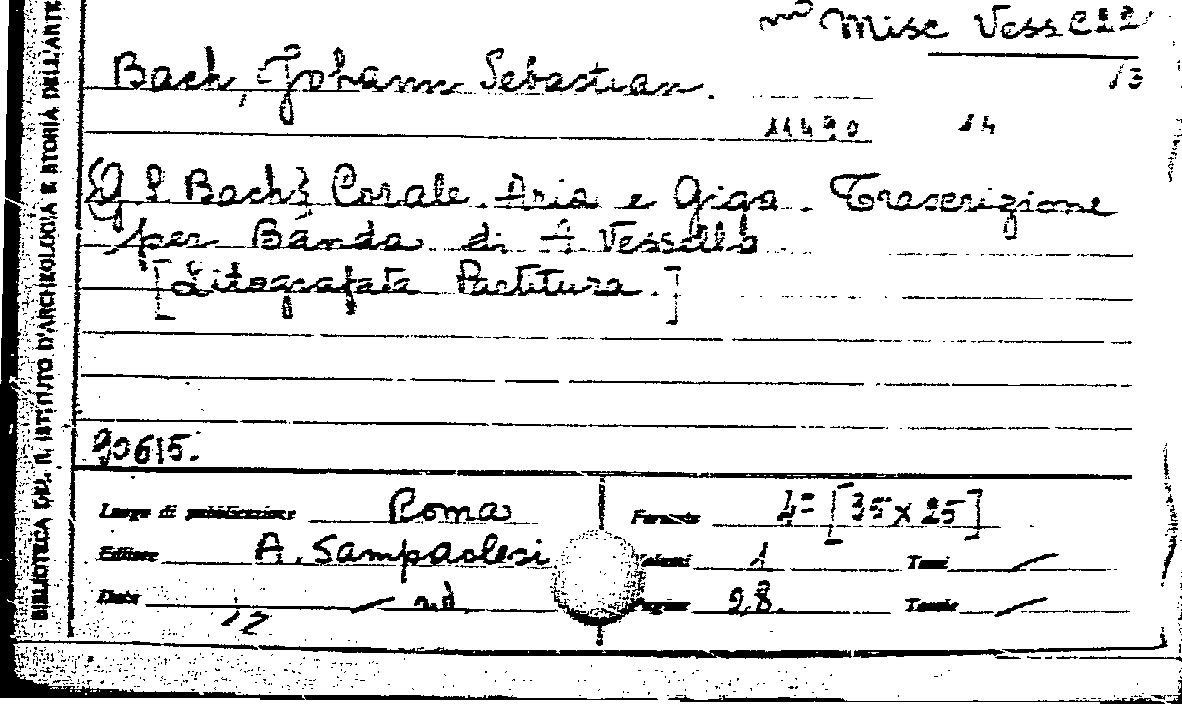 Misc Vess C22
13
Bach, Johann Sebastian.
11490 14
G S Bach} Corale. Aria e Giga. Trascrizione
per Banda di A Vessella
[Litografata Partitura.]
90615.
Luogo di pubblicazione Roma
Formato 4º [35x25]
Editore A. Sampaolesi
Volumi 1 Tomi /
Data / n.d.
Pagine 28. Tavole /
12
BIBLIOTECA DEL R. ISTITUTO D'ARCHEOLOGIA E STORIA DELL'ARTE